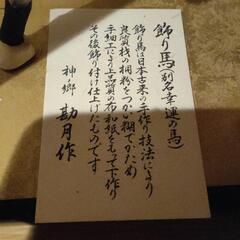 飾り馬(別名幸運の馬)
飾り馬は日本古来の手作り技法により
良質桟の桐粉をつかい糊でかため
手細工により上品質の布和紙をもって下作り
その後飾り付け仕上げたものです
神ノ郷 勘月作